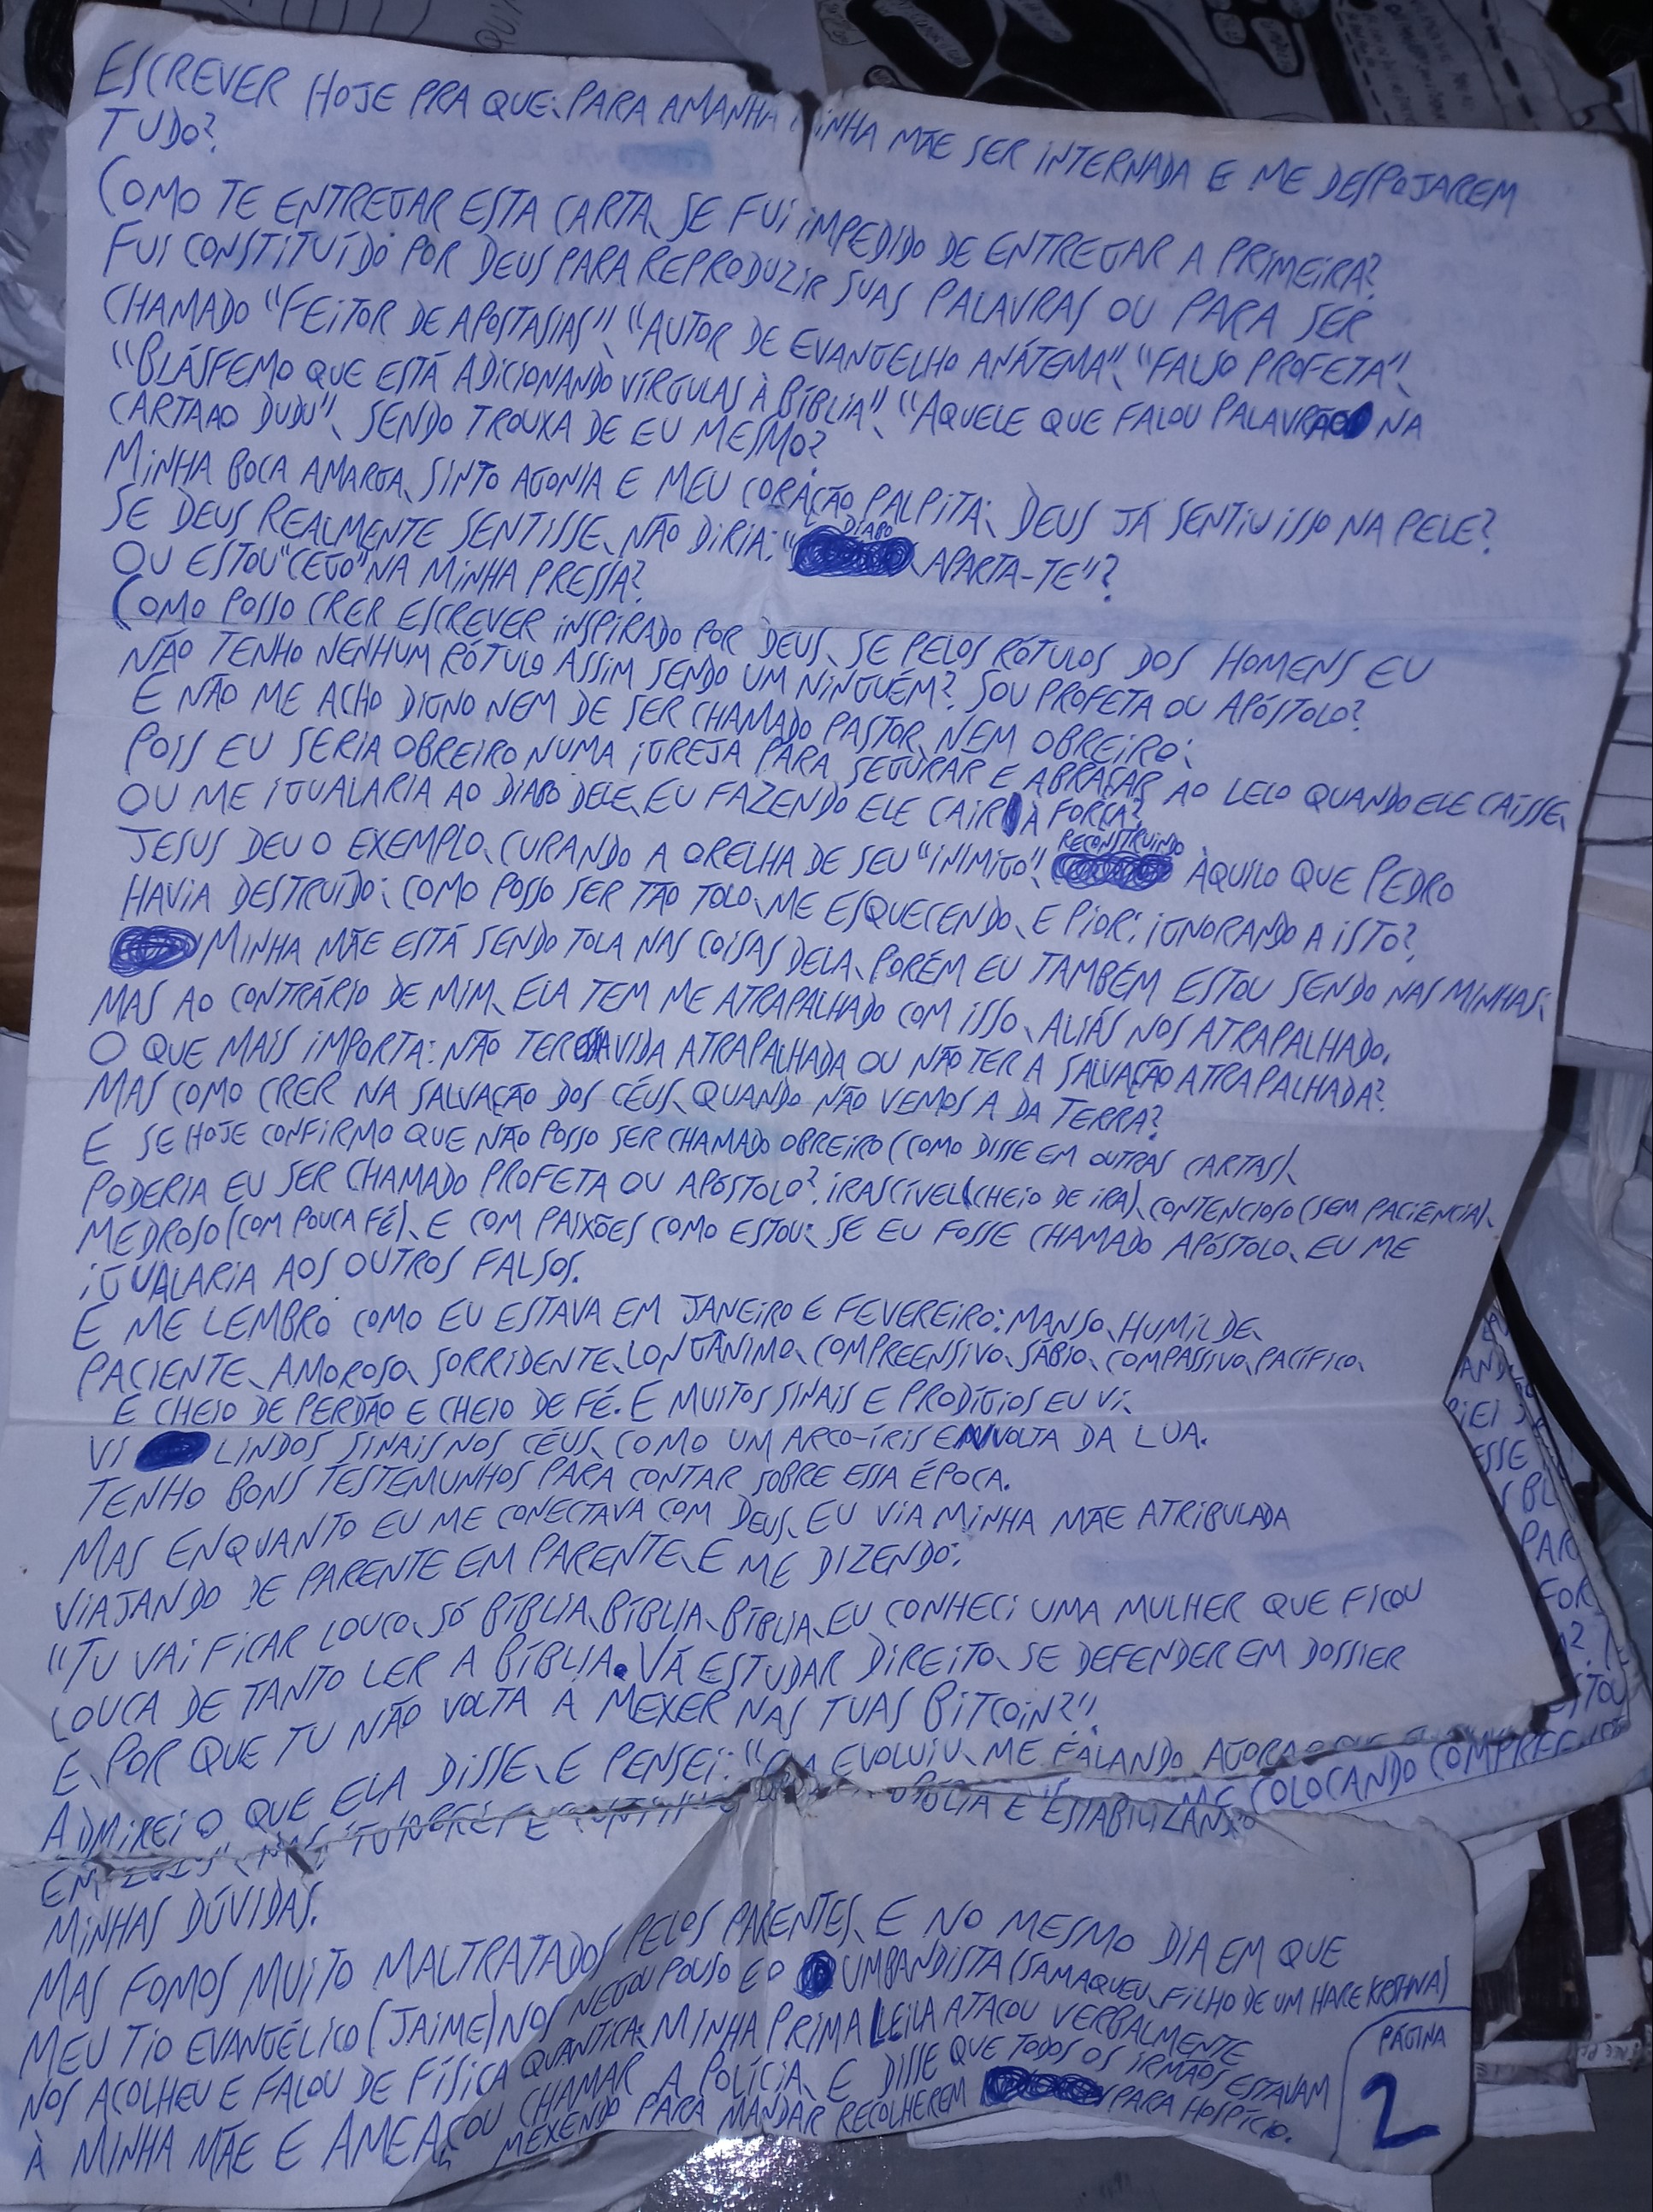 ESCREVER HOJE PRA QUE, PARA AMANHÃ MINHA MÃE SER INTERNADA E ME DESPOJAREM
TUDO?
COMO TE ENTREGAR ESTA CARTA, SE FUI IMPEDIDO DE ENTREGAR A PRIMEIRA?
FUI CONSTITUÍDO POR DEUS PARA REPRODUZIR SUAS PALAVRAS OU PARA SER
CHAMADO "FEITOR DE APOSTASIAS", "AUTOR DE EVANGELHO ANÁTEMA", "FALSO PROFETA",
"BLÁSFEMO QUE ESTÁ ADICIONANDO VÍRGULAS À BÍBLIA", "AQUELE QUE FALOU PALAVRÃO NA
CARTA AO DUDU", SENDO TROUXA DE EU MESMO?
MINHA BOCA AMARGA, SINTO AGONIA E MEU CORAÇÃO PALPITA; DEUS JÁ SENTIU ISSO NA PELE?
SE DEUS REALMENTE SENTISSE, NÃO DIRIA: "DIABO, APARTA-TE"?
OU ESTOU "CEGO" NA MINHA PRESSA?
COMO POSSO CRER ESCREVER INSPIRADO POR DEUS, SE PELOS RÓTULOS DOS HOMENS EU
NÃO TENHO NENHUM RÓTULO ASSIM SENDO UM NINGUÉM? SOU PROFETA OU APÓSTOLO?
E NÃO ME ACHO DIGNO NEM DE SER CHAMADO PASTOR, NEM OBREIRO;
POIS EU SERIA OBREIRO NUMA IGREJA PARA SEGURAR E ABRAÇAR AO LELO QUANDO ELE CAÍSSE,
OU ME IGUALARIA AO DIABO DELE, EU FAZENDO ELE CAIR À FORÇA?
JESUS DEU O EXEMPLO, CURANDO A ORELHA DE SEU "INIMIGO", RECONSTRUINDO ÀQUILO QUE PEDRO
HAVIA DESTRUÍDO; COMO POSSO SER TÃO TOLO, ME ESQUECENDO, E PIOR; IGNORANDO A ISTO?
MINHA MÃE ESTÁ SENDO TOLA NAS COISAS DELA, PORÉM EU TAMBÉM ESTOU SENDO NAS MINHAS;
MAS AO CONTRÁRIO DE MIM, ELA TEM ME ATRAPALHADO COM ISSO, ALIÁS NOS ATRAPALHADO.
O QUE MAIS IMPORTA: NÃO TER A VIDA ATRAPALHADA OU NÃO TER A SALVAÇÃO ATRAPALHADA?
MAS COMO CRER NA SALVAÇÃO DOS CÉUS, QUANDO NÃO VEMOS A DA TERRA?
E SE HOJE CONFIRMO QUE NÃO POSSO SER CHAMADO OBREIRO (COMO DISSE EM OUTRAS CARTAS),
PODERIA EU SER CHAMADO PROFETA OU APÓSTOLO? IRASCÍVEL (CHEIO DE IRA), CONTENCIOSO (SEM PACIÊNCIA),
MEDROSO (COM POUCA FÉ), E COM PAIXÕES COMO ESTOU; SE EU FOSSE CHAMADO APÓSTOLO, EU ME
IGUALARIA AOS OUTROS FALSOS.
E ME LEMBRO COMO EU ESTAVA EM JANEIRO E FEVEREIRO: MANSO, HUMILDE,
PACIENTE, AMOROSO, SORRIDENTE, LONGÂNIMO, COMPREENSIVO, SÁBIO, COMPASSIVO, PACÍFICO,
E CHEIO DE PERDÃO E CHEIO DE FÉ. E MUITOS SINAIS E PRODÍGIOS EU VI,
VI LINDOS SINAIS NOS CÉUS, COMO UM ARCO-ÍRIS EM VOLTA DA LUA.
TENHO BONS TESTEMUNHOS PARA CONTAR SOBRE ESSA ÉPOCA.
MAS ENQUANTO EU ME CONECTAVA COM DEUS, EU VIA MINHA MÃE ATRIBULADA
VIAJANDO DE PARENTE EM PARENTE, E ME DIZENDO:
"TU VAI FICAR LOUCO, SÓ BÍBLIA, BÍBLIA, BÍBLIA, EU CONHECI UMA MULHER QUE FICOU
LOUCA DE TANTO LER A BÍBLIA. VÁ ESTUDAR DIREITO, SE DEFENDER EM DOSSIER
E, POR QUE TU NÃO VOLTA A MEXER NAS TUAS BITCOIN?".
ADMIREI O QUE ELA DISSE, E PENSEI: "ELA EVOLUIU, ME FALANDO AGORA O QUE
EM BÍBLIA E "ESTABILIZANDO
ME COLOCANDO
MINHAS DÚVIDAS.
MAS FOMOS MUITO MALTRATADOS PELOS PARENTES, E NO MESMO DIA EM QUE
MEU TIO EVANGÉLICO (JAIME) NOS NEGOU POUSO E O UMBANDISTA (SAMAQUEU, FILHO DE UM HARE KRSHNA)
NOS ACOLHEU E FALOU DE FÍSICA QUÂNTICA; MINHA PRIMA LEILA ATACOU VERBALMENTE
À MINHA MÃE E AMEAÇOU CHAMAR A POLÍCIA, E DISSE QUE TODOS OS IRMÃOS ESTAVAM
MEXENDO PARA MANDAR RECOLHEREM PARA HOSPÍCIO.
PÁGINA
2